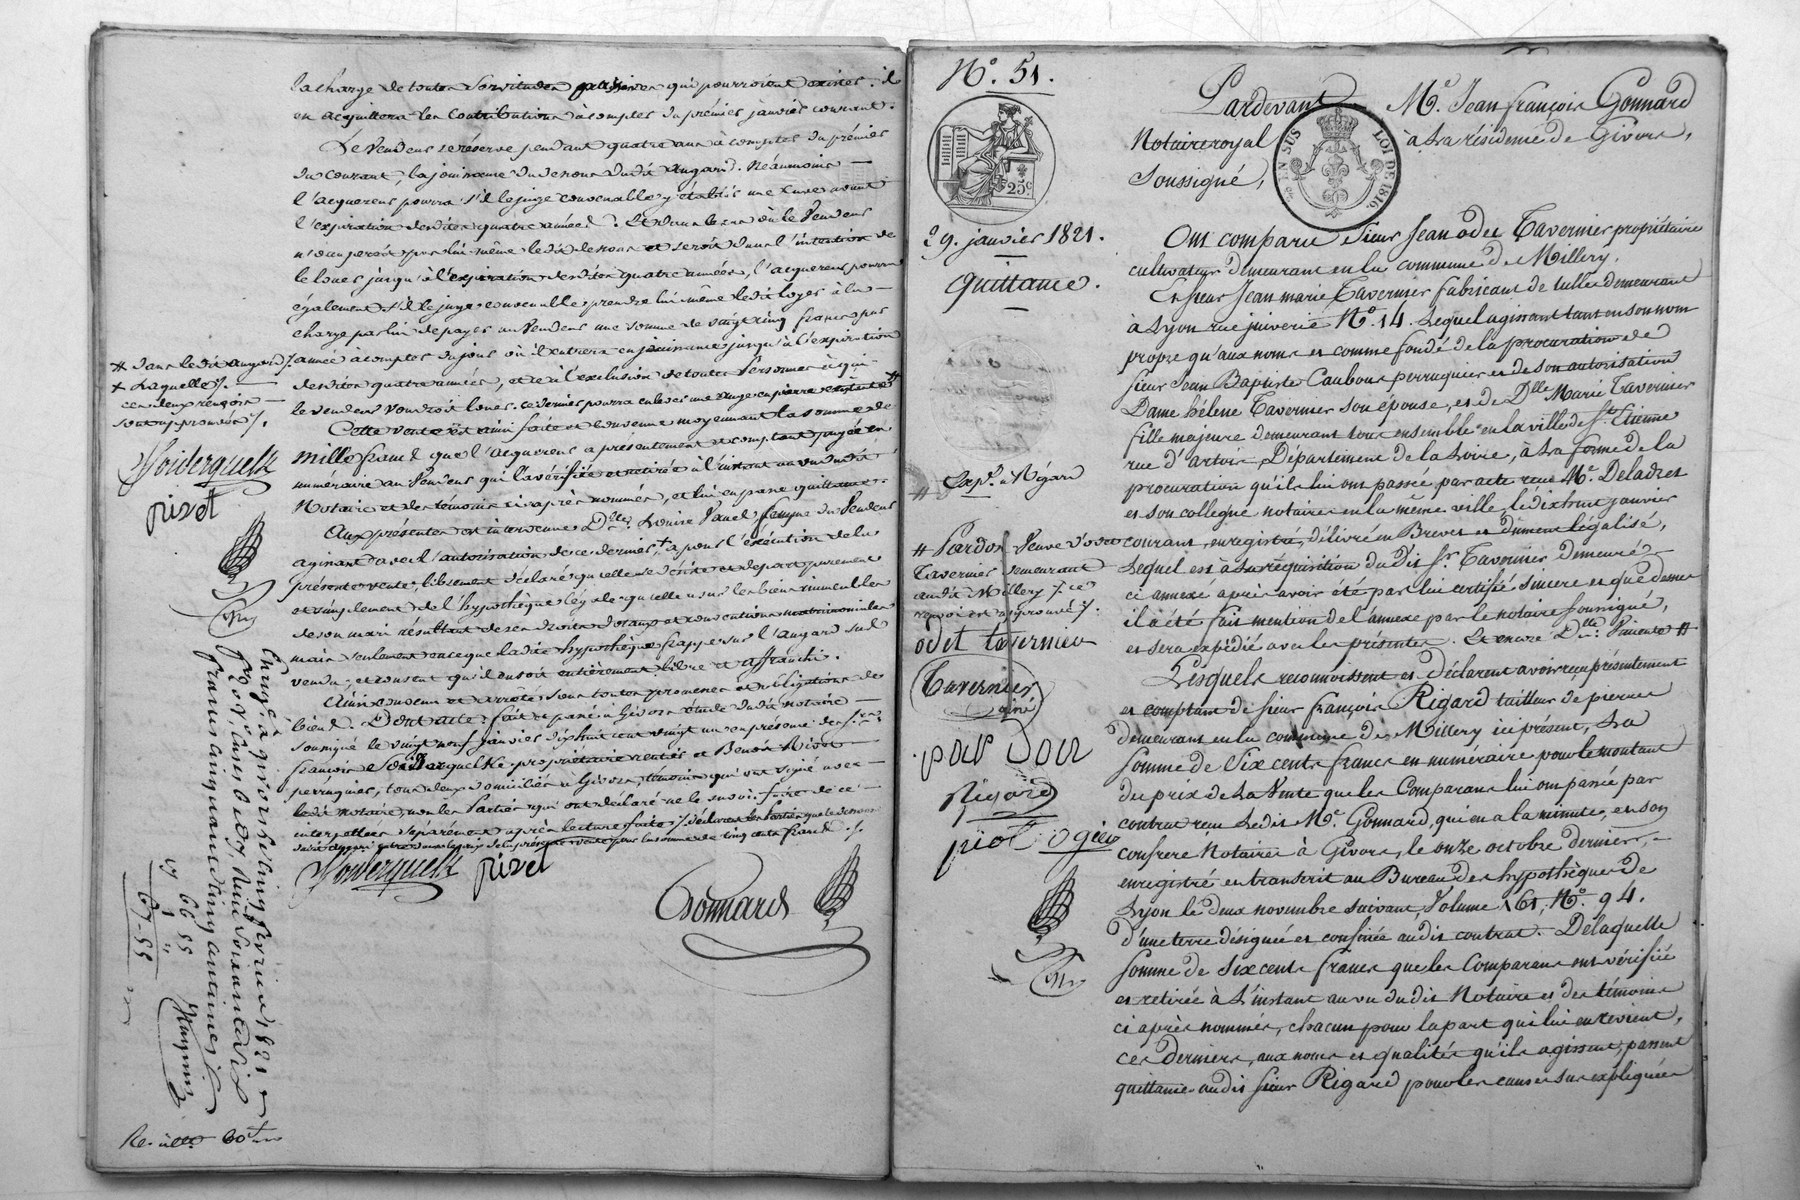 la charge de toutes servitudes passives qui pourroient exister. il
en acquittera les contributions à compter du premier janvier courant.
Le vendeur se réserve pendant quatre ans à compter du premier
du courant, la jouissance du dessous dudit angard. Néanmoins
l'acquereur pourra s'il le juge convenable y établir une cuve avant
l'expiration desdites quatre années. Et dans le cas où le vendeur
n'occuperoit pas lui même ledit dessous et seroit dans l'intention de
le louer jusqu'à l'expiration desdites quatre années, l'acquereur pourra
également s'il le juge convenable prendre lui même ledit loyer à la
charge par lui de payer au vendeur une somme de vingt cinq francs par
année à compter du jour où il entrera en jouissance jusqu'à l'expiration
desdites quatre années, et ce à l'exclusion de toutes personnes à qui
le vendeur voudroit louer. ce dernier pourra enlever une auge en pierre existante #
Cette vente est ainsi faite et convenue moyennant la somme de
mille francs que l'acquereur a présentement et comptant payée en
numéraire au vendeur qui l'a vérifiée et retirée à l'instant au vu dudit
Notaire et des témoins ci après nommés, et lui en passe quittance.
Aux présentes est intervenue D.lle Louise femme du vendeur
agissant de l'autorisation de ce dernier, + a pour l'exécution de la
présente vente, librement déclaré qu'elle se désiste et départ purement
et simplement de l'hypothèque légale qu'elle a sur les biens immeubles
de son mari résultant de ses droits dotaux et conventions matrimoniales
mais seulement en ce que ladite hypothèque frappe sur l'angard sus
vendu, et consent qu'il en soit entièrement libre et affranchi.
Ainsi convenu et arrêté sous toutes promesses et obligations de
biens. Dont acte: fait et passé à Givors étude dudit notaire
soussigné le vingt neuf janvier dix huit cent vingt un en présence des sieurs
françois Souderquelk propriétaire rentier et Benoit Rivet
perruquier, tous deux domiciliés à Givors, témoins qui ont signé avec
ledit notaire, non les Parties qui ont déclaré ne le savoir faire de ce
interpellées séparément après lecture faite
# dans ledit angard /.
+ Laquelle /.
ces deux renvois
sont approuvés /.
Souderquelk
rivet
Souderquelk rivet
Gonnard
Enregistré à givors le cinq fevrier 1821
Re
N.o 51.
25c
LOI DE 1816.
EN SUS
29. janvier 1821.
Quittance.
Exp.n à Rigard
# Pardon Veuve d'odet
Tavernier demeurant
audit Millery /. ce
renvoi est approuvé /.
odet tavernier
Tavernier
ainé
Rigard
Pardevant M.e Jean françois Gonnard
Notaire royal à la résidence de Givors,
soussigné,
Ont comparu sieur Jean odet Tavernier propriétaire
cultivateur demeurant en la commune de Millery,
Et sieur Jean marie Tavernier fabricant de tulles demeurant
à Lyon rue juiverie N.o 14. Lequel agissant tant en son nom
propre qu'aux noms et comme fondé de la procuration de
sieur Jean Baptiste Caubous perruquier et de son autorisation
Dame hélène Tavernier son épouse, et de D.lle Marie Tavernier
fille majeure demeurant tous ensemble en la ville de S.t Etienne
rue d'artois, Département de la Loire, à la forme de la
procuration qu'ils lui ont passée par acte reçu M.e Deladret
et son collègue notaires en la même ville, le dix huit janvier
courant, enregistré, délivré en Brevet et duement légalisé,
Lequel est à la réquisition dudit S.r Tavernier, demeuré
ci annexé après avoir été par lui certifié sincere et que dessus
il a été fait mention de l'annexe par le notaire soussigné,
et sera expédié avec les présentes. Et encore D.lle Pimente #
Lesquels reconnoissent et déclarent avoir reçu présentement
et comptant de sieur françois Rigard tailleur de pierres
demeurant en la commune de Millery ici présent, La
somme de Six cents francs en numéraire pour le montant
du prix de la Vente que les Comparans lui ont passée par
contrat reçu Ledit M.e Gonnard, qui en a la minute, et son
confrere Notaires à Givors, le onze octobre dernier,
enregistré et transcrit au Bureau des hypothèques de
Lyon le deux novembre suivant, Volume 161, N.o 94.
d'une terre désignée et confinée audit contrat. De laquelle
somme de Six cents francs que les Comparans ont vérifiée
et retirée à L'instant au vu dudit Notaire et des témoins
ci après nommés, chacun pour la part qui lui en revient,
ces derniers, aux noms et qualités qu'ils agissent, passent
quittance audit sieur Rigard pour les causes sus expliquées